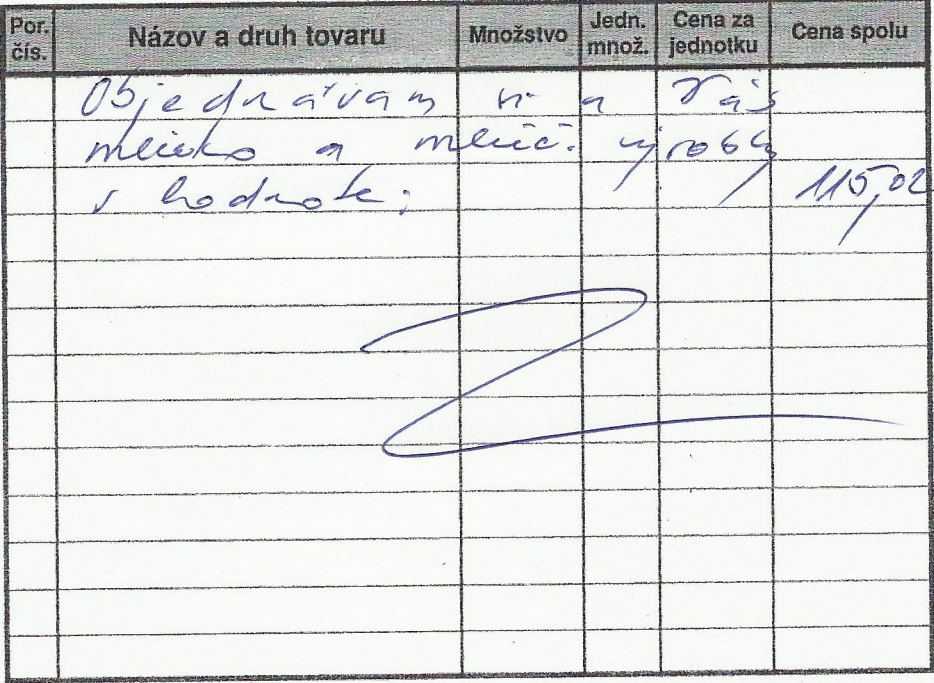 Por. čís. Názov a druh tovaru Množstvo Jedn. množ. Cena za jednotku Cena spolu
Objednávam si a Vás
mlieko a mlieč. výrobky
v hodnote: 115,02